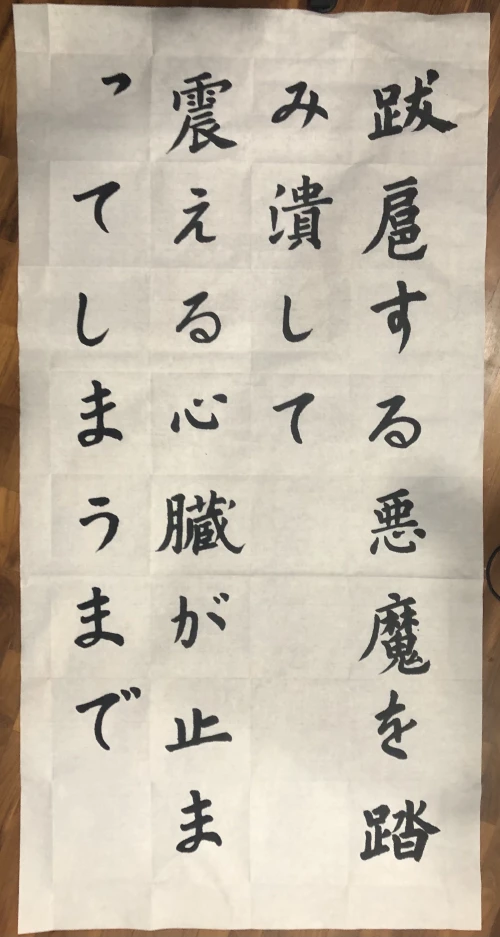 跋扈する悪魔を踏
み潰して
震える心臓が止ま
ってしまうまで